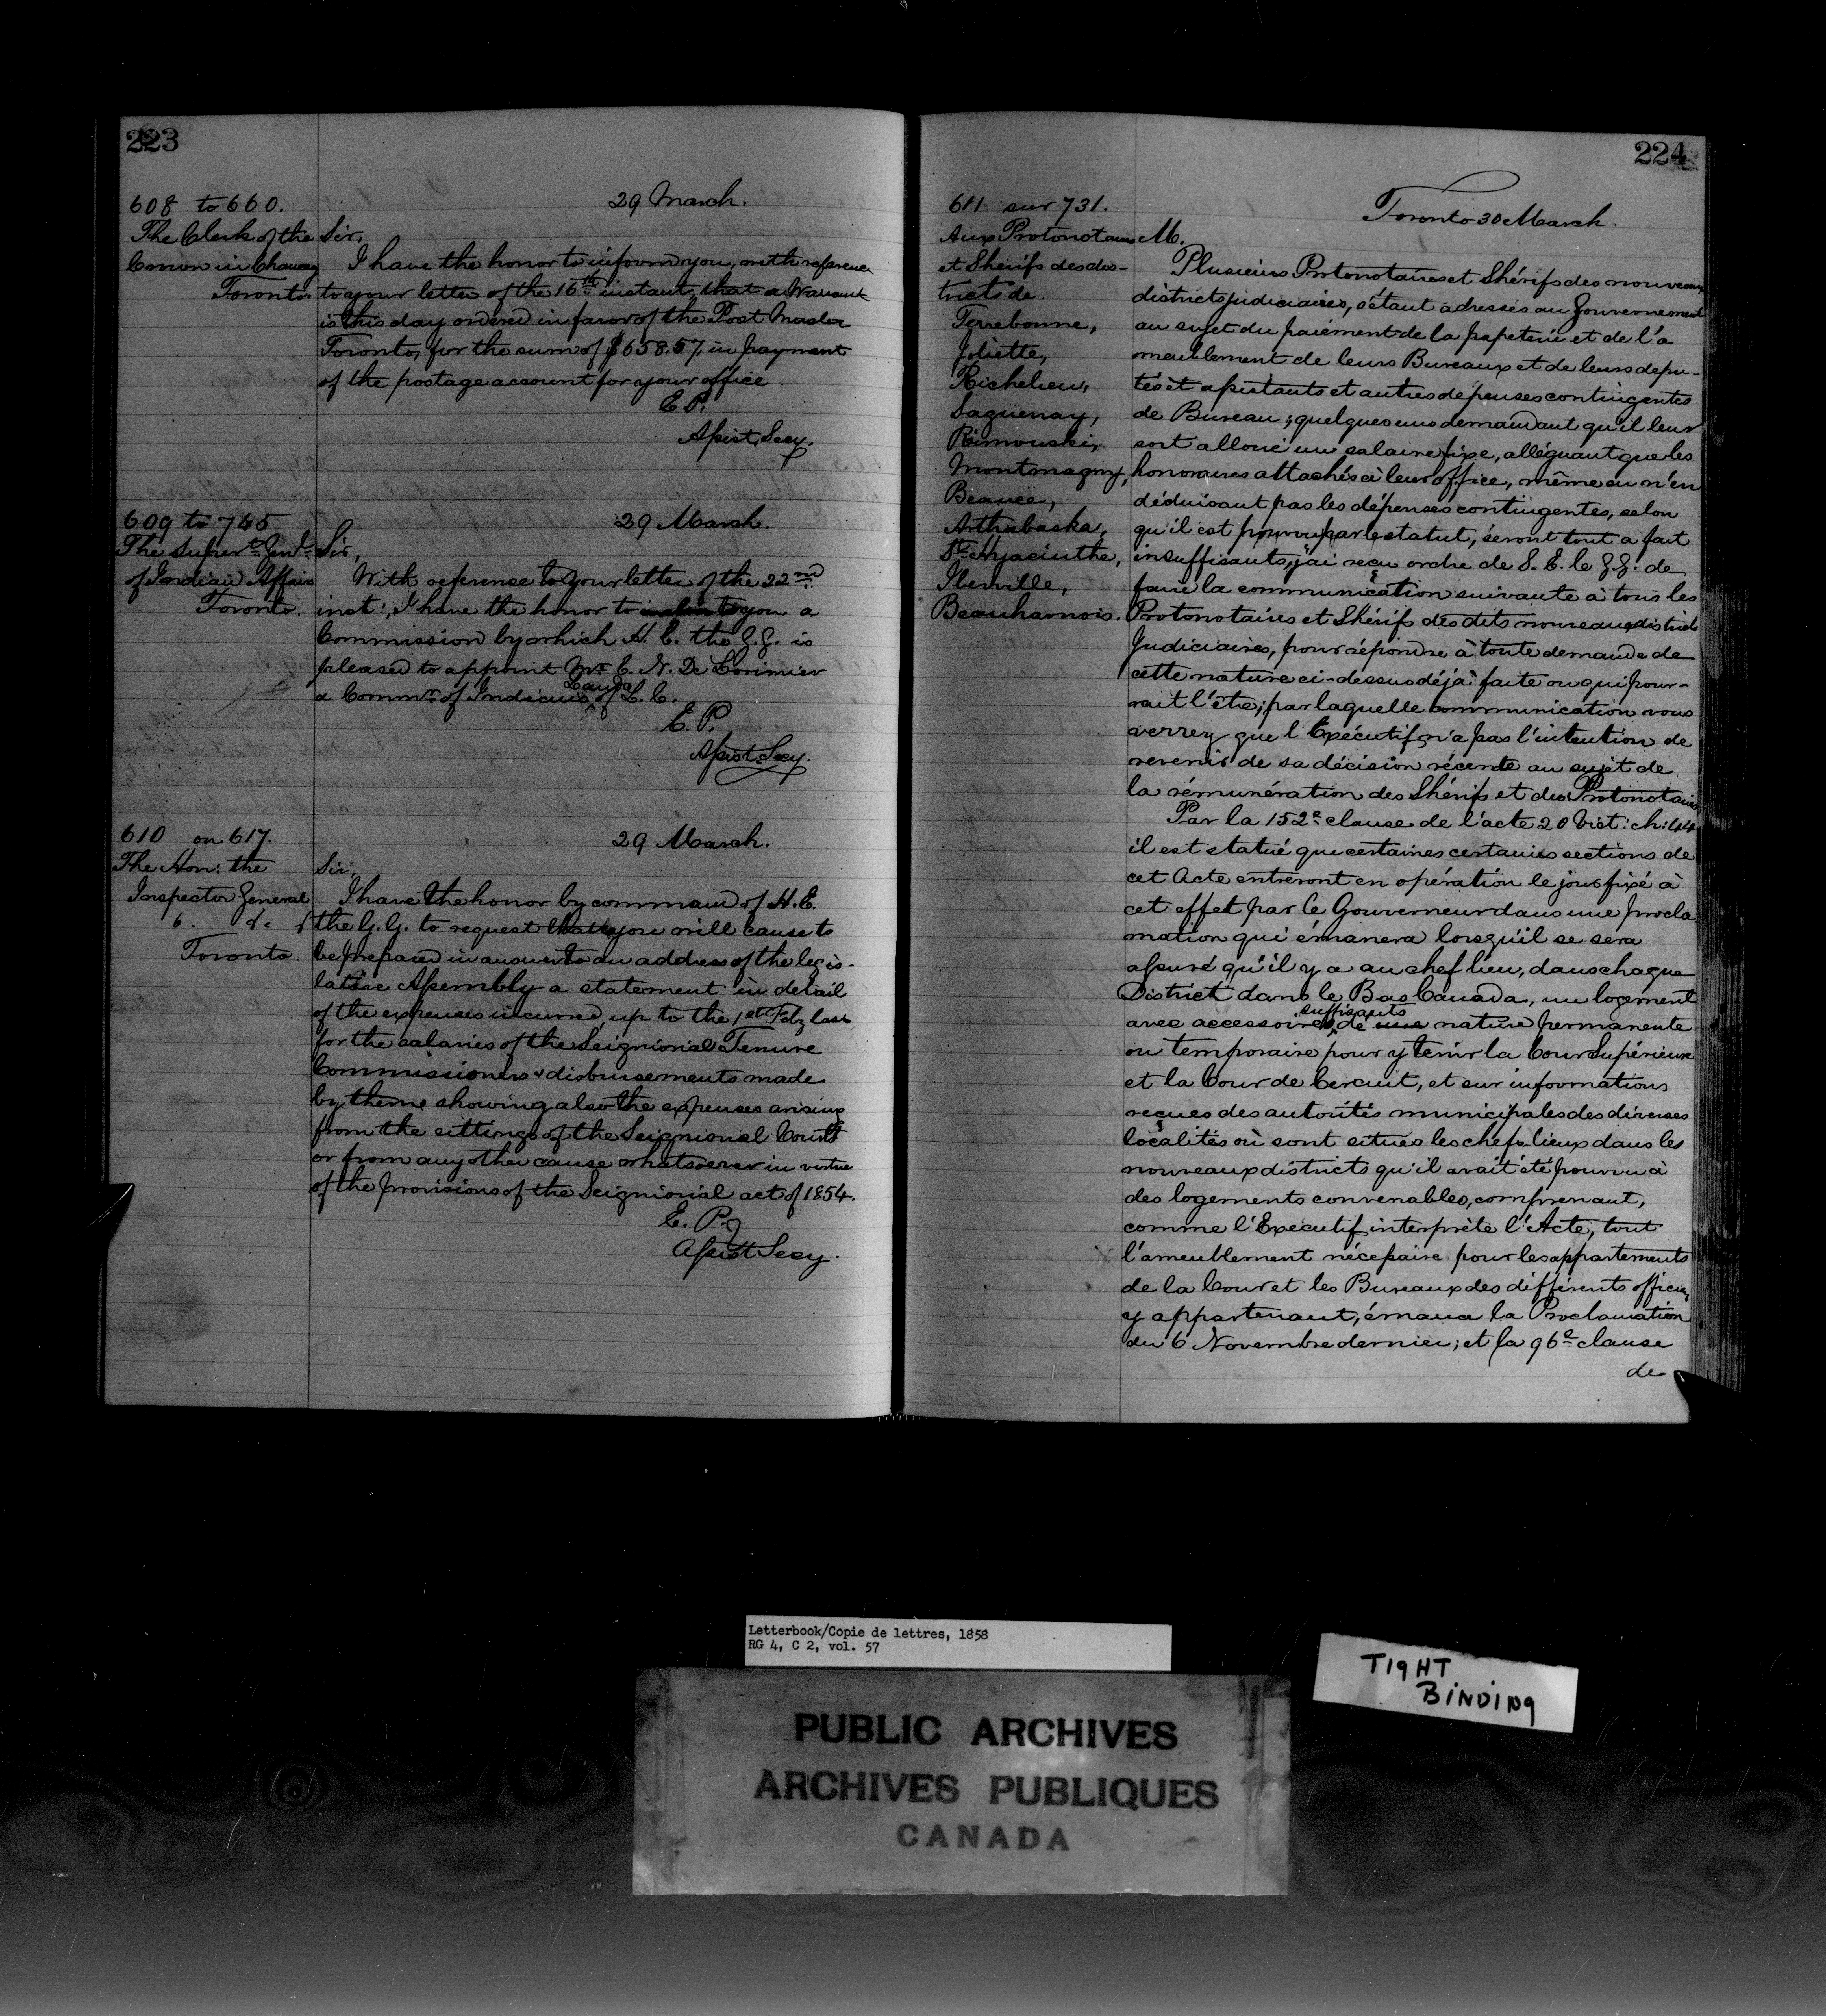 223
608 to 660.
29 March.
The Clerk of the
Crown in Chancy
Toronto
Sir,
I have the honor to inform you, with reference
to your letter of the 16th instant, that a Warrant
is this day ordered in favor of the Post Master
Toronto, for the sum of $658.57, in payment
of the postage account for your office.
E. P.
Assist. Secy.
609 to 745
29 March.
The Supert. Genl.
of Indian Affairs
Toronto.
Sir,
With reference to your letter of the 22nd
inst:, I have the honor to to you a
Commission by which H. E. the G. G. is
pleased to appoint Mr. E. N. De Lorimier
a Commr. of Indians Lands of L. C.
E. P.
Assist. Secy.
610 on 617.
29 March.
The Hon: the
Inspector General
Toronto.
Sir,
I have the honor by command of H. E.
the G. G. to request that you will cause to
be prepared in answer to an address of the legis-
lative Assembly a statement in detail
of the expenses incurred, up to the 1st Feby last
for the salaries of the Seigniorial Tenure
Commissioners & disbursements made
by them showing also the expenses arising
from the sittings of the Seigniorial Courts
or from any other cause whatsoever in virtue
of the provisions of the Seigniorial act of 1854.
E. P.
Assist Secy.
224
611 sur 731.
Toronto 30 March.
Aux Protonotaires
et Shérifs des dis-
tricts de
Terrebonne,
Joliette,
Richelieu,
Saguenay,
Rimouski,
Montmagny,
Beauce,
Arthabaska,
St. Hyacinthe,
Iberville,
Beauharnois.
M.
Plusieurs Protonotaires et Shérifs des nouveaux
districts judiciaires, s'étant adressés au Gouvernement
au sujet du paiement de la papeterie et de l'a
meublement de leurs Bureaux et de leurs depu-
tés et assistants et autres dépenses contingentes
de Bureau; quelques uns demandant qu'il leur
soit alloué un salaire fixe, alléguant que les
honoraires attachés à leur office, même en n'en
déduisant pas les dépenses contingentes, selon
qu'il est pourvu par le statut, seront tout a fait
insuffisants, j'ai reçu ordre de S. E. le G. G. de
faire la communication suivante à tous les
Protonotaires et Shérifs des dits nouveaux districts
Judiciaires, pour répondre à toute demande de
cette nature ci-dessus déjà faite ou qui pour-
rait l'être; par laquelle communication vous
verrez que l'Exécutif n'a pas l'intention de
revenir de sa décision récente au sujet de
la rémunération des Shérifs et des Protonotaires
Par la 152e clause de l'acte 20 Vict: ch: 44
il est statué que certaines certaines sections de
cet Acte entreront en opération le jour fixé à
cet effet par le Gouverneur dans une procla
mation qui émanera lorsqu'il se sera
assuré qu'il y a au chef lieu, dans chaque
District dans le Bas Canada, un logement
avec accessoires suffisants de une nature permanente
ou temporaire pour y tenir la Cour Supérieure
et la Cour de Cercuit, et sur informations
reçues des autorités municipales des diverses
localités où sont situés les chefs lieux dans les
nouveaux districts qu'il avait été pourvu à
des logements convenables, comprenant,
comme l'Exécutif interprète l'Acte, tout
l'ameublement nécessaire pour les appartements
de la Cour et les Bureaux des différents officiers
y appartenant, émana la Proclamation
du 6 Novembre dernier; et la 96e clause
de
Letterbook/Copie de lettres, 1858
RG 4, C 2, vol. 57
TIGHT
BINDING
PUBLIC ARCHIVES
ARCHIVES PUBLIQUES
CANADA